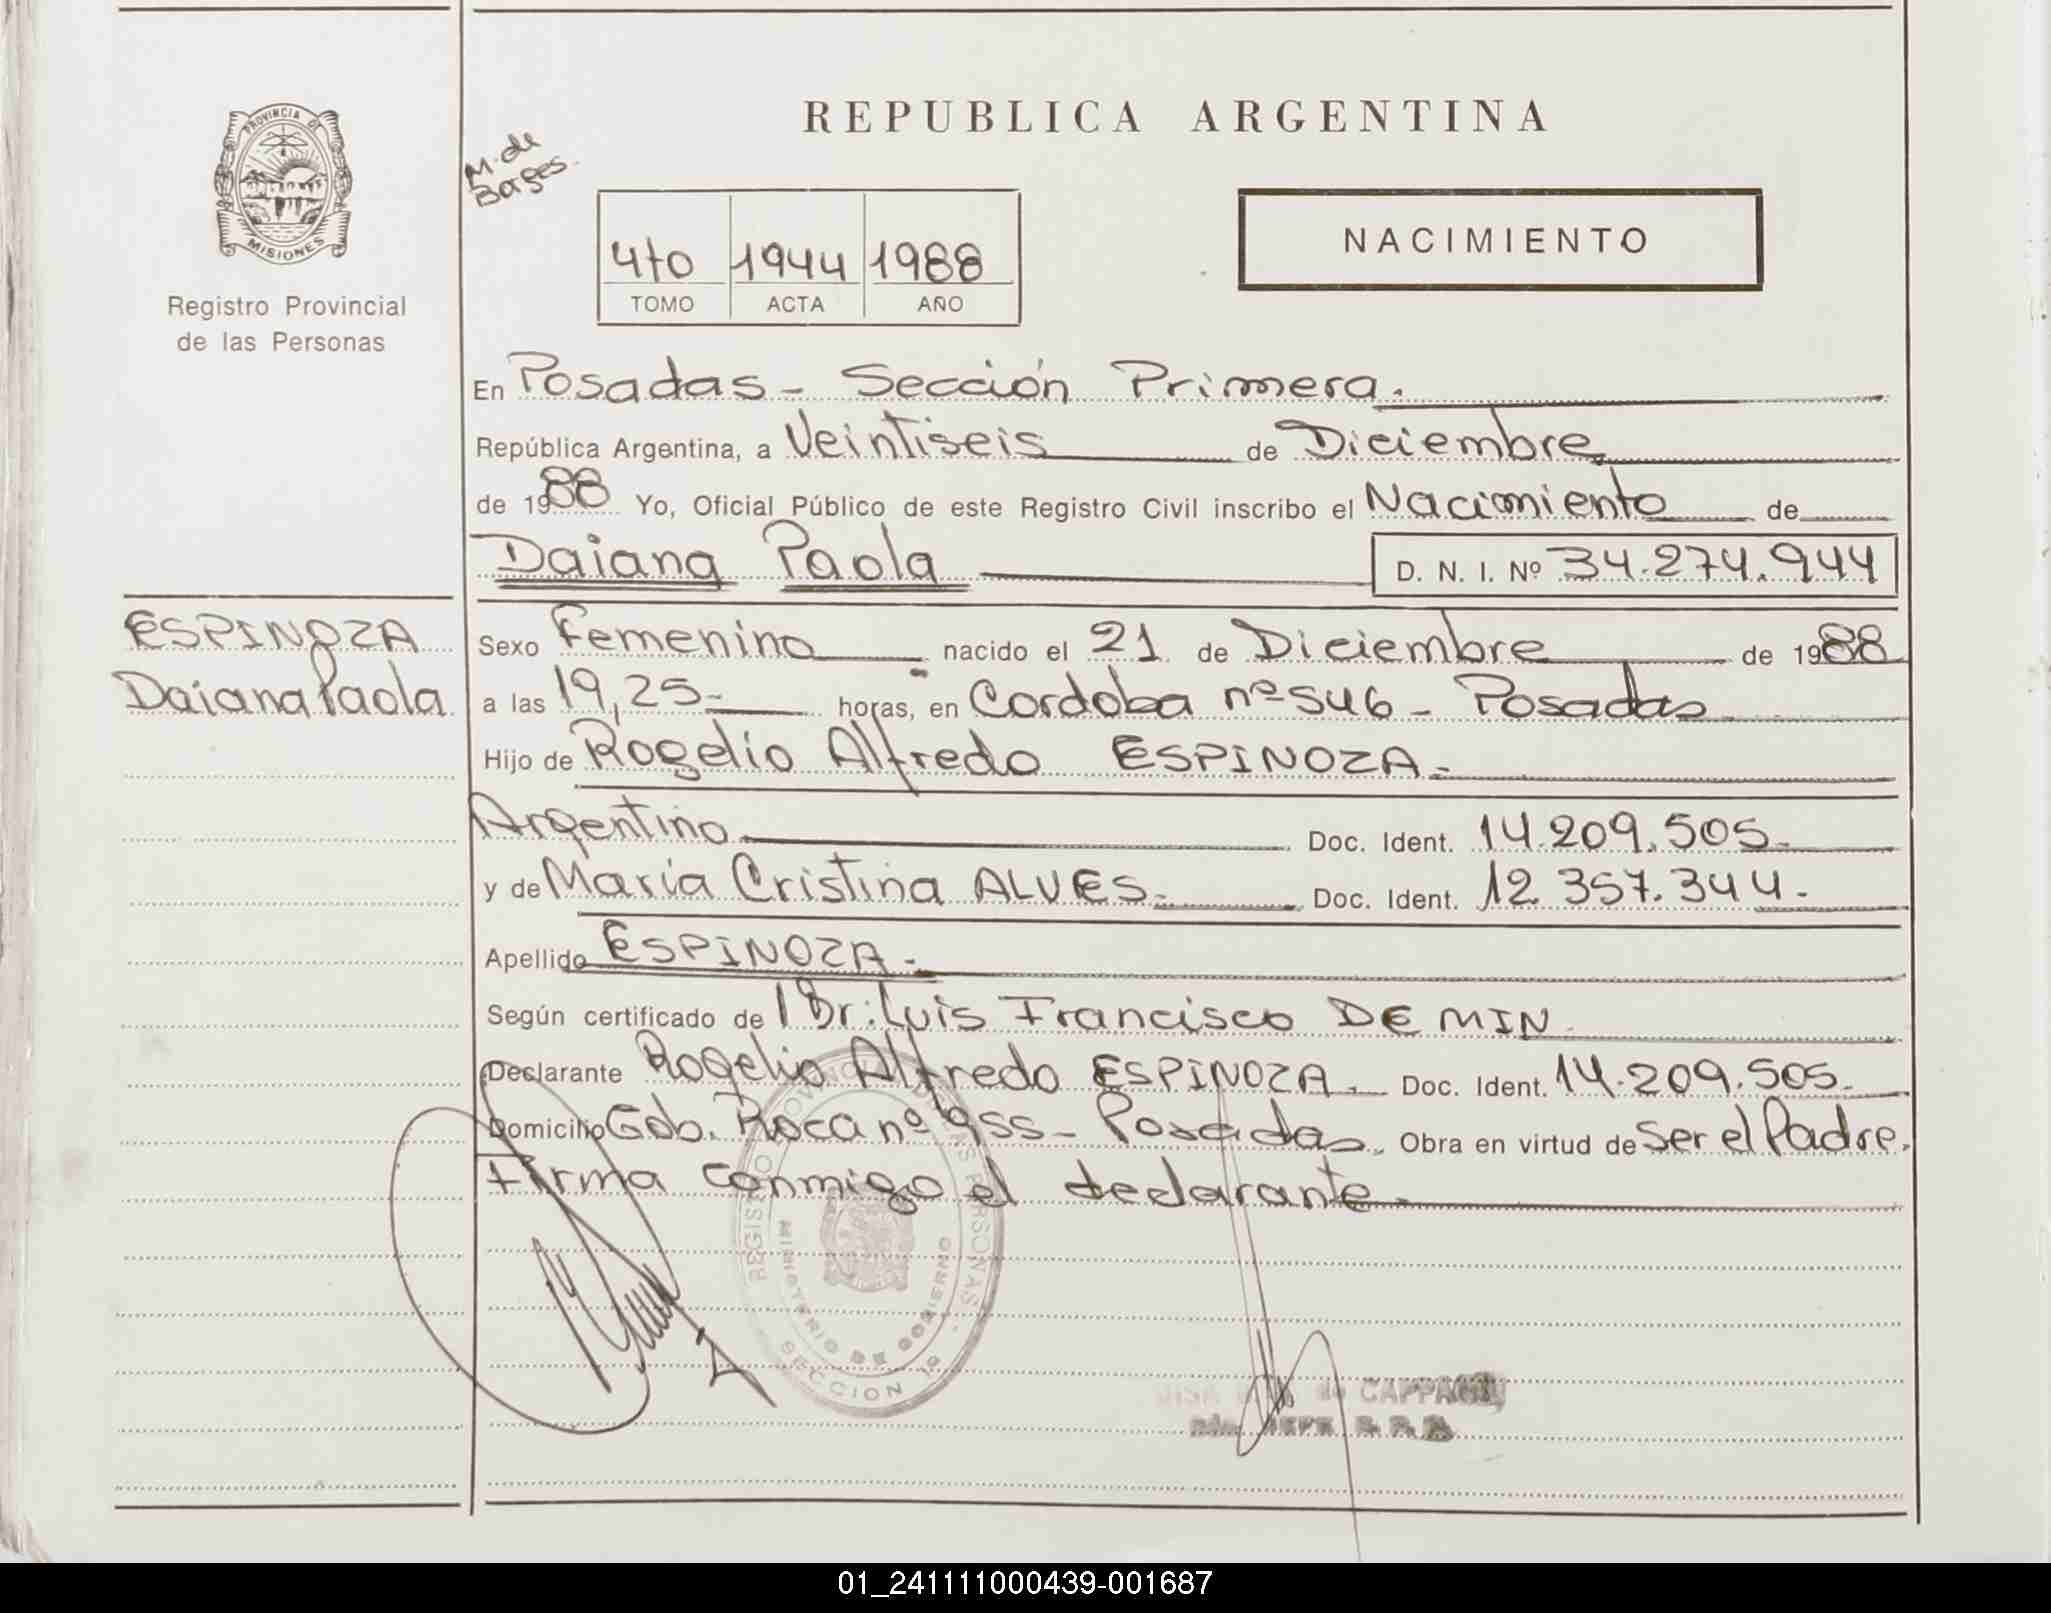 PROVINCIA DE
MISIONES
Registro Provincial
de las Personas
ESPINOZA
Daiana Paola
REPUBLICA ARGENTINA
M. de
4to 1944 1988
TOMO ACTA AÑO
NACIMIENTO
En Posadas - Sección Primera.
República Argentina, a Veintiseis de Diciembre
de 1988 Yo, Oficial Público de este Registro Civil inscribo el Nacimiento de
Daiana Paola D. N. I. Nº 34.274.944
Sexo Femenino nacido el 21 de Diciembre de 1988
a las 19,25- horas, en Cordoba nº 546 - Posadas
Hijo de Rogelio Alfredo ESPINOZA.
Argentino Doc. Ident. 14.209.505.
y de María Cristina ALVES. Doc. Ident. 12.357.344.
Apellido ESPINOZA.
Según certificado del Dr: Luis Francisco DEMIN
Declarante Rogelio Alfredo ESPINOZA. Doc. Ident. 14.209.505.
Domicilio Gob. Roca nº 955 - Posadas. Obra en virtud de Ser el Padre.
Firma conmigo el declarante.
REGISTRO PROVINCIAL DE LAS PERSONAS
MINISTERIO DE GOBIERNO
SECCION 1º
de
01_241111000439-001687